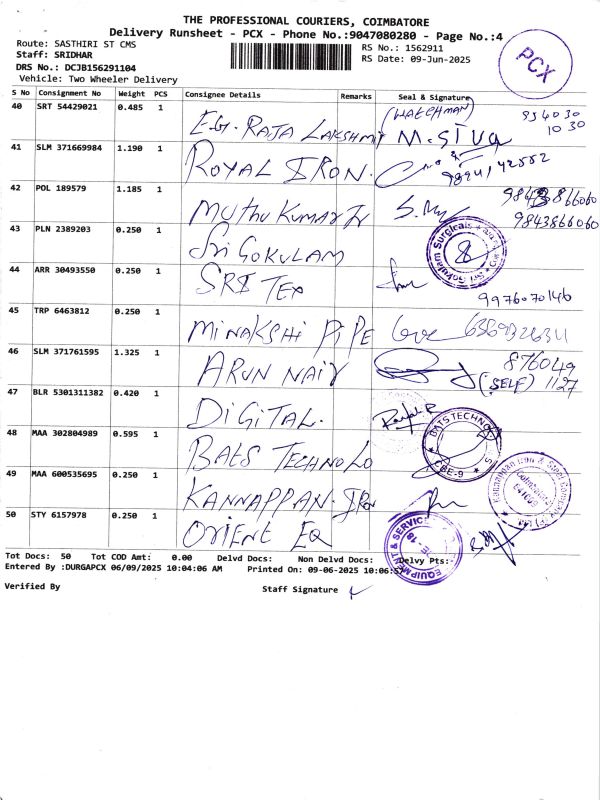 THE PROFESSIONAL COURIERS, COIMBATORE
Delivery Runsheet - PCX - Phone No.:9047080280 - Page No.:4
Route: SASTHIRI ST CMS
RS No.: 1562911
Staff: SRIDHAR
RS Date: 09-Jun-2025
DRS No.: DCJB1562911104
Vehicle: Two Wheeler Delivery
PCX
S No Consignment No Weight PCS Consignee Details Remarks Seal & Signature
40 SRT 54429021 0.485 1 E.G. RAJA LAKSHMI (WATCHMAN) M.SIVA
10 30
41 SLM 371669984 1.190 1 ROYAL IRON.
42 POL 189579 1.185 1 MUTHU KUMAR Jr
9843866060
43 PLN 2389203 0.250 1 Sri GOKULAM
44 ARR 30493550 0.250 1 SRI TEX
9976070146
45 TRP 6463812 0.250 1 MINAKSHI PIPE
46 SLM 371761595 1.325 1 ARUN NAIR
876049
(SELF) 1127
47 BLR 5301311382 0.420 1 DIGITAL.
48 MAA 302804989 0.595 1 BATS TECHNOLO
BATS TECHNOLOGIES
CBE-9
49 MAA 600535695 0.250 1 KANNAPPAN. IRON
Kannappan Iron & Steel Company (P) Ltd
Coimbatore
641009
50 STY 6157978 0.250 1 ORIENT EQ
EQUIPMENT & SERVICE
Tot Docs: 50 Tot COD Amt: 0.00 Delvd Docs: Non Delvd Docs: Delvy Pts:-
Entered By :DURGAPCX 06/09/2025 10:04:06 AM Printed On: 09-06-2025 10:06:57
Verified By
Staff Signature